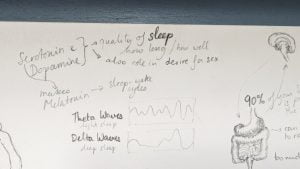 Serotonin &
Dopamine
quality of sleep
how long, how well
also role in desire for sex
makes
Melatonin → sleep-wake
cycles
Theta Waves
light sleep
Delta Waves
deep sleep
90%
of